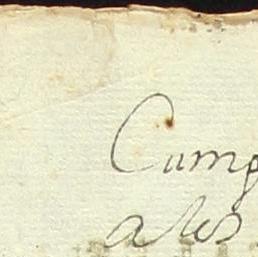 Cump
a les